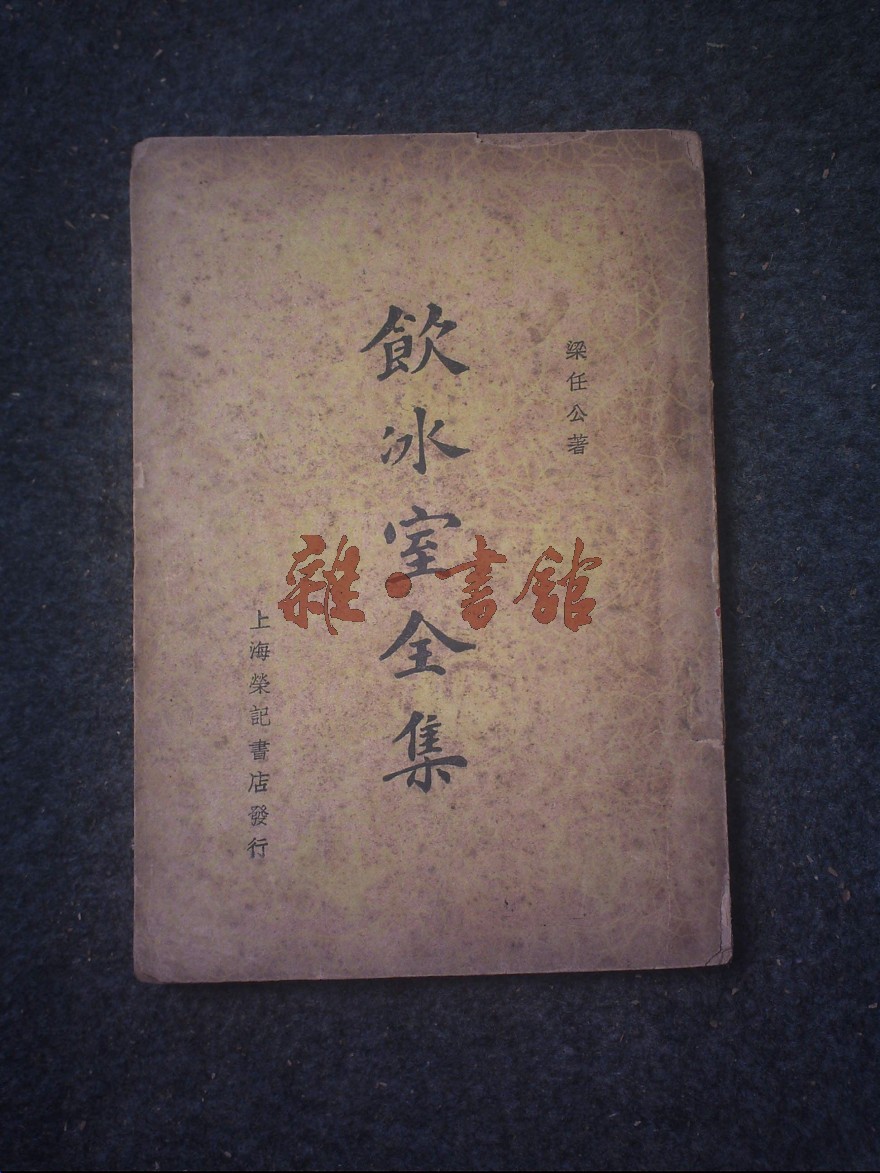 梁任公著
飲冰室全集
上海榮記書店發行
雜·書館